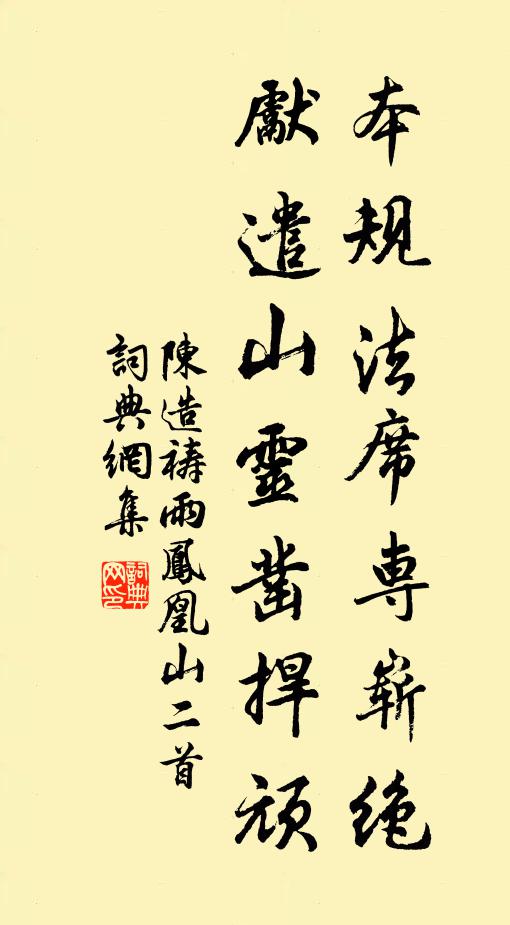 本規法席専嶄絶
獻遣山靈凿捍頑
陳造禱雨鳳凰山二首
詞典網集
詞典网印